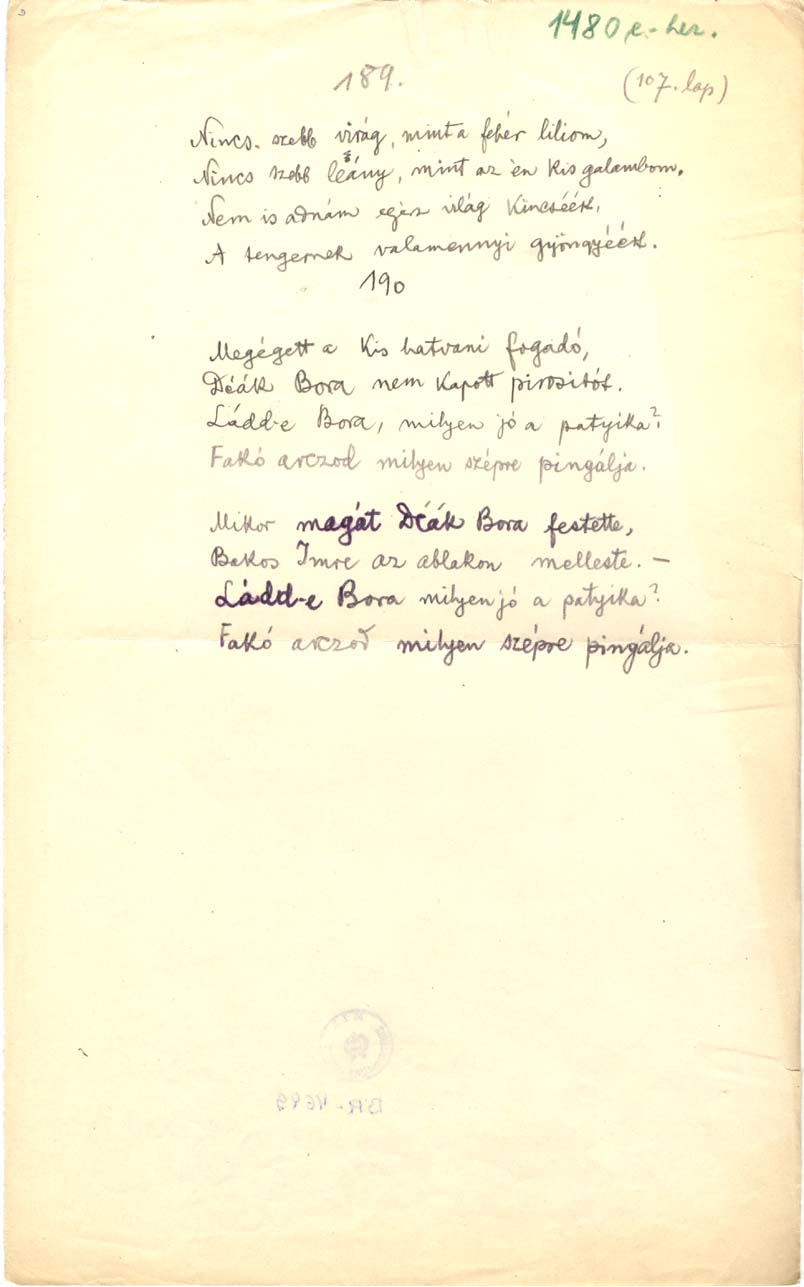 1480 e-hez.
189.
(107. lap)
Nincs. szebb virág, mint a fehér liliom,
Nincs szebb leány, mint az én kis galambom.
Nem is adnám egész világ kincséért,
A tengernek valamennyi gyöngyéért.
190
Megégett a kis hatvani fogadó,
Déák Bora nem kapott pirositót.
Ládd-e Bora, milyen jó a patyika?
Fakó arczod milyen szépre pingálja.
Mikor magát Déák Bora festette,
Bakos Imre az ablakon melleste. —
Ládd-e Bora milyen jó a patyika?
Fakó arczod milyen szépre pingálja.
BR-4699